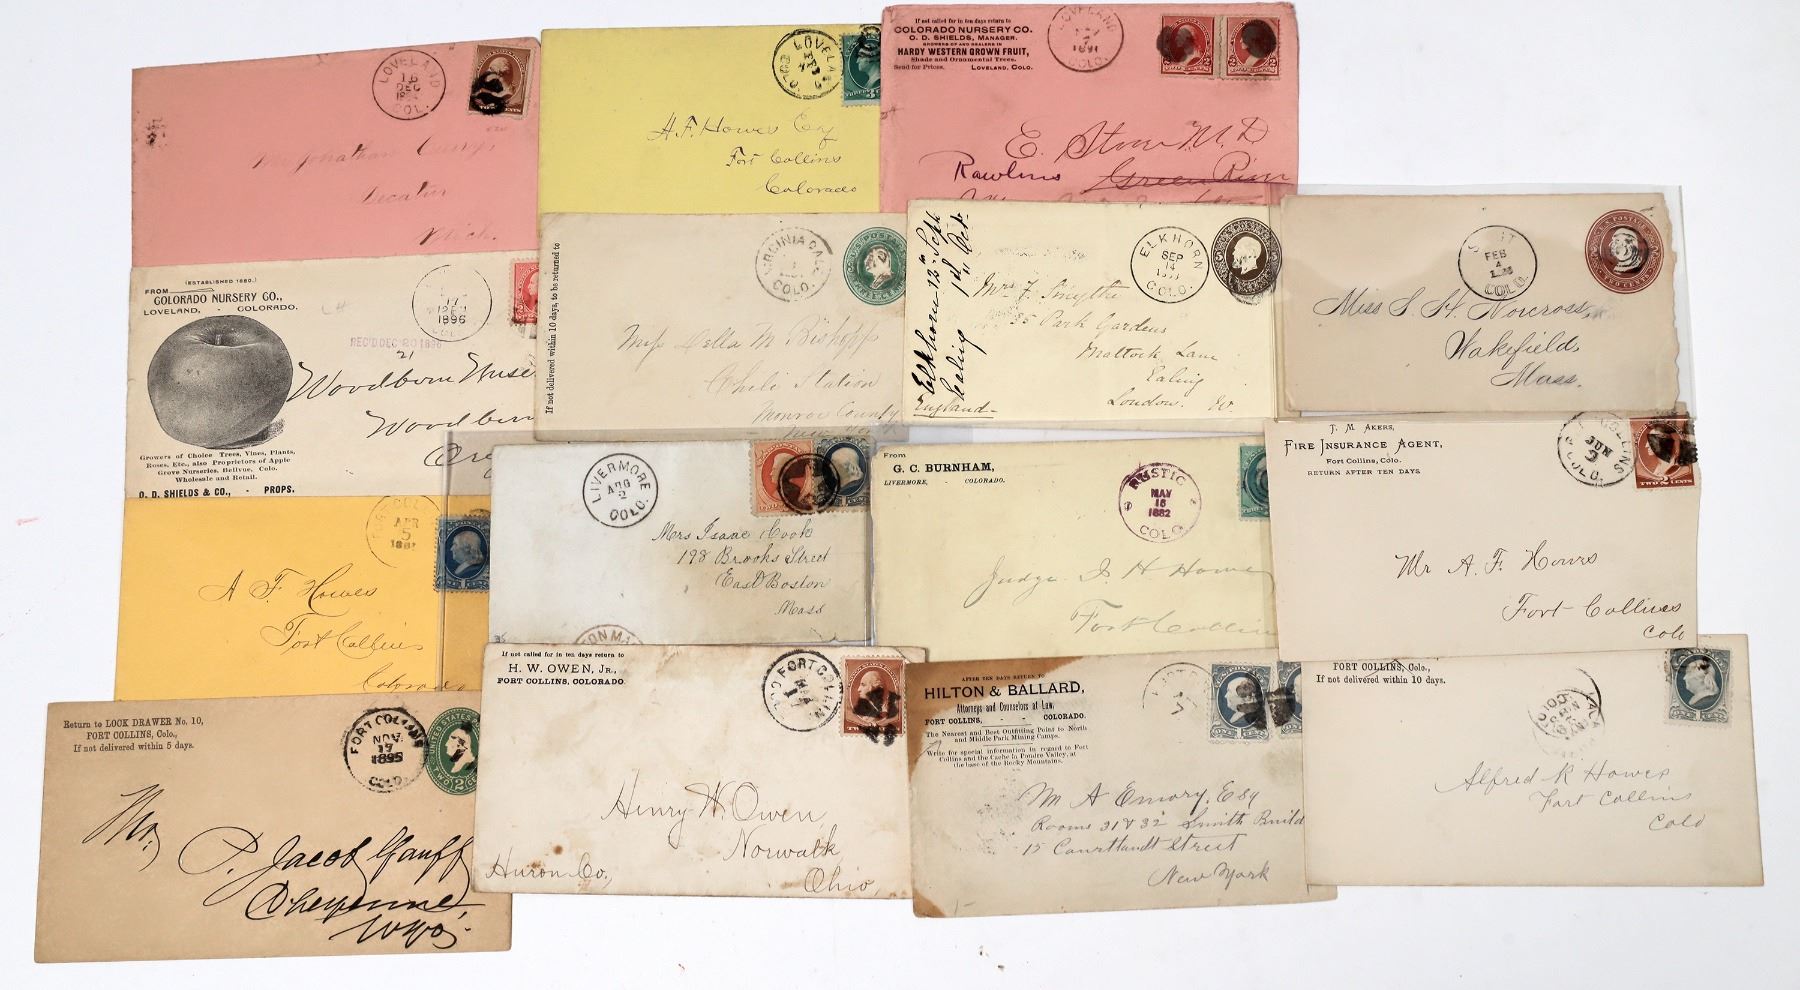 LOVELAND
16
DEC
COL.
TWO CENTS
Mr Jonathan
Decatur
Mich.
LOVELAND
FEB
COLO
A. F. Howes Esq
Fort Collins
Colorado
If not called for in ten days return to
COLORADO NURSERY CO.
O. D. SHIELDS, MANAGER.
GROWERS OF AND DEALERS IN
HARDY WESTERN GROWN FRUIT,
Shade and Ornamental Trees.
Send for Prices. LOVELAND, COLO.
LOVELAND
7
1891
COLO.
2 2
E. Stone M.D
Rawlins Green River
(ESTABLISHED 1880.)
FROM
COLORADO NURSERY CO.,
LOVELAND, - COLORADO.
17
1896
REC'D DEC 20 1896
21
Woodburn
Woodburn
Growers of Choice Trees, Vines, Plants,
Roses, Etc., also Proprietors of Apple
Grove Nurseries, Bellvue, Colo.
Wholesale and Retail.
O. D. SHIELDS & CO., - PROPS.
If not delivered within 10 days, to be returned to
VIRGINIA DALE
COLO.
Miss Della M. Bishopp
Chili Station
Monroe County
New York
Elkhorn 12th Sept
Ealing 1st Oct.
ELKHORN
SEP
14
COLO.
Mrs F. Smythe
35 Park Gardens
Mattock Lane
Ealing
London. W.
England
FEB
4
COLO.
U.S. POSTAGE
TWO CENTS
Miss S. H. Norcross,
Wakefield,
Mass.
FORT COLLINS
APR
5
A F. Howes
Fort Collins
Colorado
LIVERMORE
AUG
2
COLO.
Mrs Isaac Cook
198 Brooks Street
East Boston
Mass
From
G. C. BURNHAM,
LIVERMORE, - COLORADO.
RUSTIC
MAY
16
1882
COLO
Judge I H Howe
Fort Collins
J. M. AKERS,
FIRE INSURANCE AGENT,
Fort Collins, Colo.
RETURN AFTER TEN DAYS.
COLLINS
JUN
2
COLO.
TWO 2 CENTS
Mr A. F. Howes
Fort Collins
Colo
Return to LOCK DRAWER No. 10,
FORT COLLINS, Colo.,
If not delivered within 5 days.
FORT COLLINS
NOV.
17
1895
COLO.
UNITED STATES
TWO 2
Mr,
P. Jacob
Cheyenne,
Wyo.
If not called for in ten days return to
H. W. OWEN, JR.,
FORT COLLINS, COLORADO.
FORT COLLINS
MAY
17
COLO
Henry W. Owen,
Norwalk,
Huron Co., Ohio,
AFTER TEN DAYS RETURN TO
HILTON & BALLARD,
Attorneys and Counselors at Law,
FORT COLLINS, - - COLORADO.
The Nearest and Best Outfitting Point to North
and Middle Park Mining Camps.
Write for special information in regard to Fort
Collins and the Cache la Poudre Valley, at
the base of the Rocky Mountains.
Wm A Emory, Esq
Rooms 31 & 32 Smith Build
15 Courtlandt Street
New York
FORT COLLINS, Colo.,
If not delivered within 10 days.
Alfred R Howes
Fort Collins
Colo